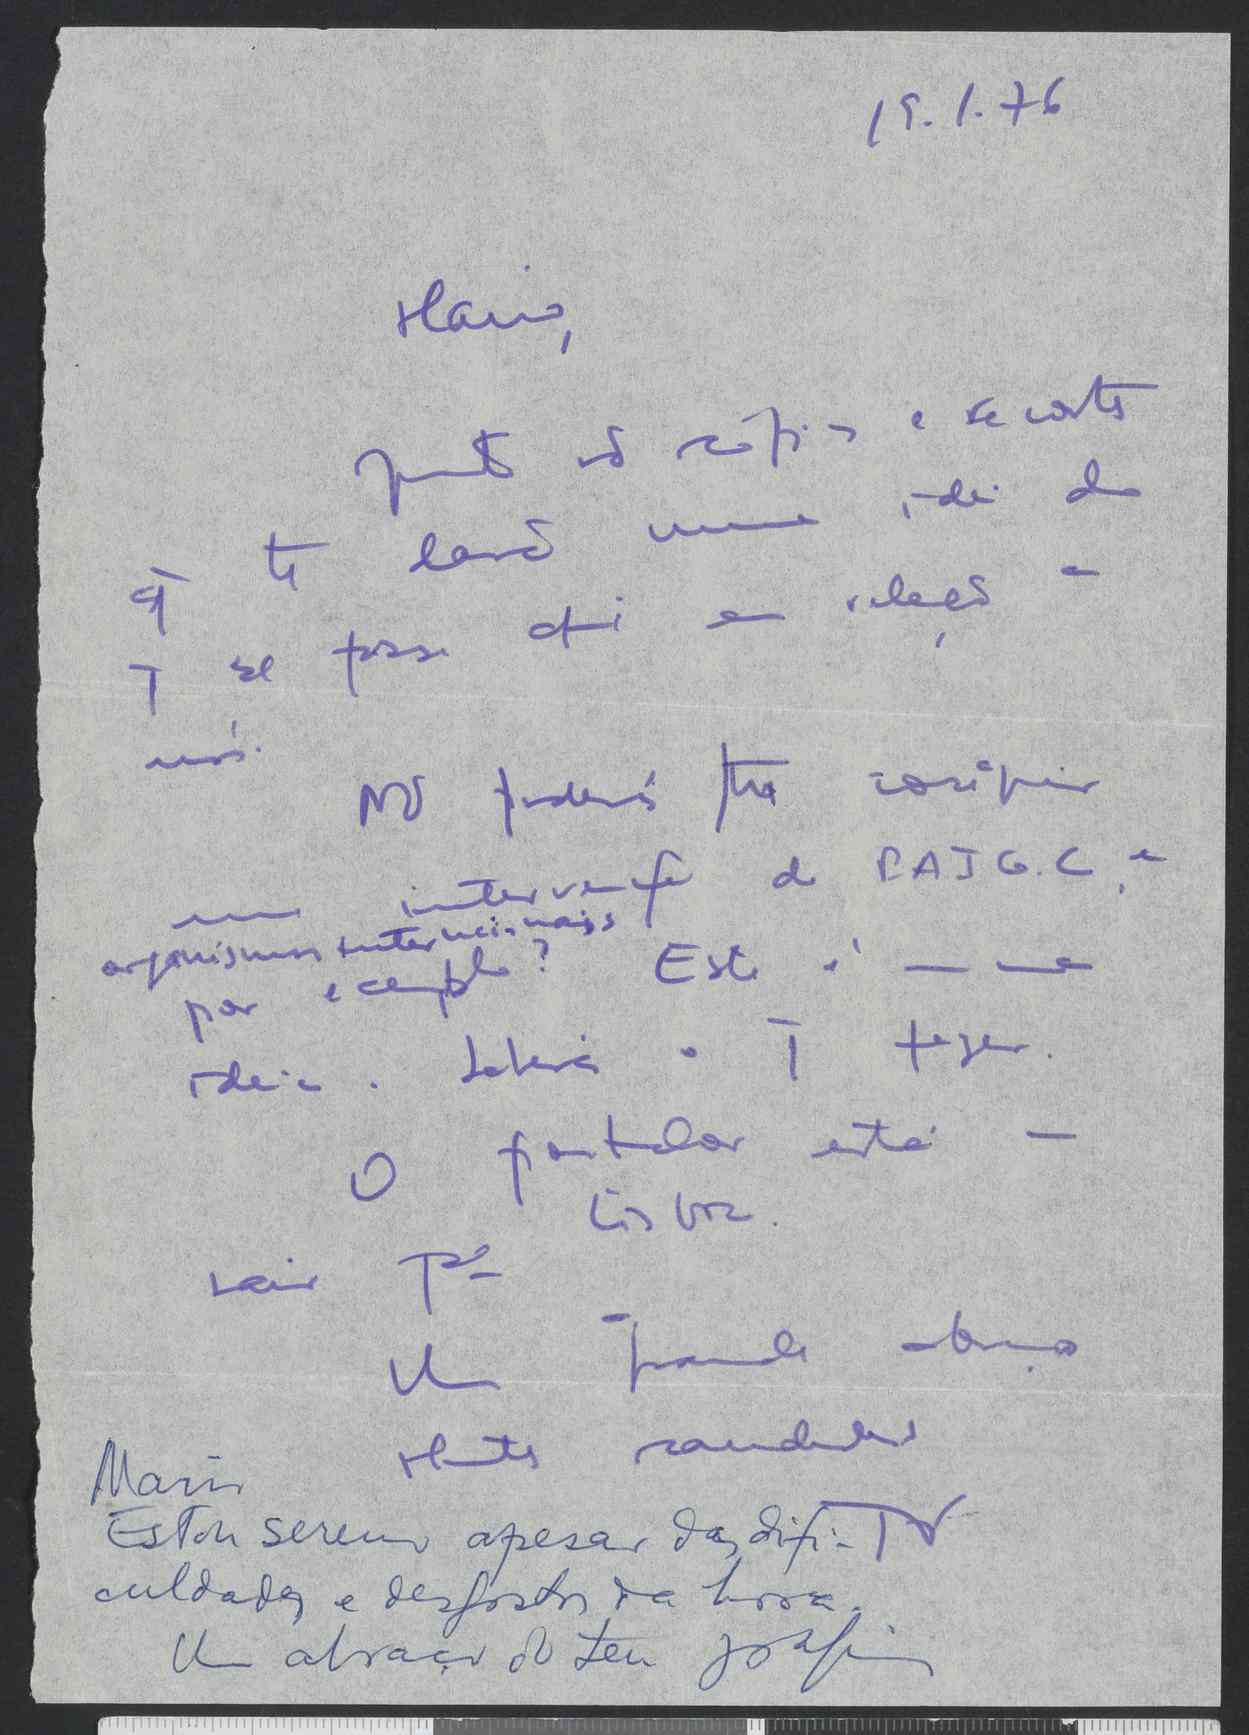 19.1.76
Mário,
Junto vão cópias e recortes
q̄ te darão uma ideia do
q̄ se passa aqui em relação a
nós.
Não poderás tu conseguir
uma intervenção do P.A.I.G.C. e
organismos internacionais
por exemplo? Esta é uma
ideia. Saberás o q̄ fazer.
O portador está
Lisboa.
sair
Um grande abraço
Muitas saudades
Mário
Estou sereno apesar das difi-
culdades e desgostos da hora.
Um abraço do teu Joaquim